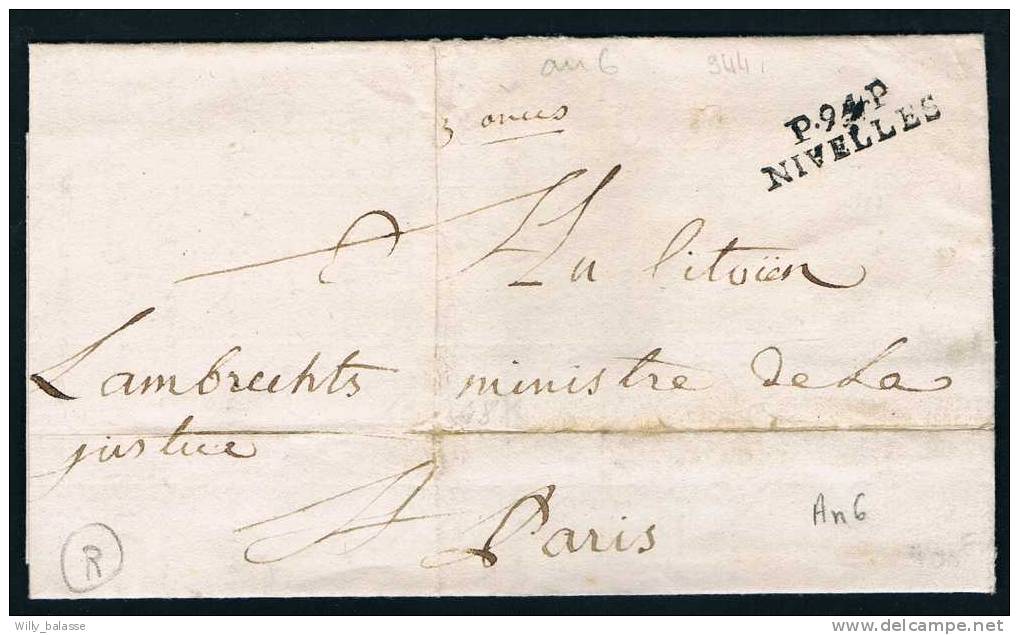 an 6
944
3 onces
P.94.P
NIVELLES
Au Citoÿen
Lambrechts ministre de La
justice
A Paris
An 6
R
Willy_balasse
delcampe.net